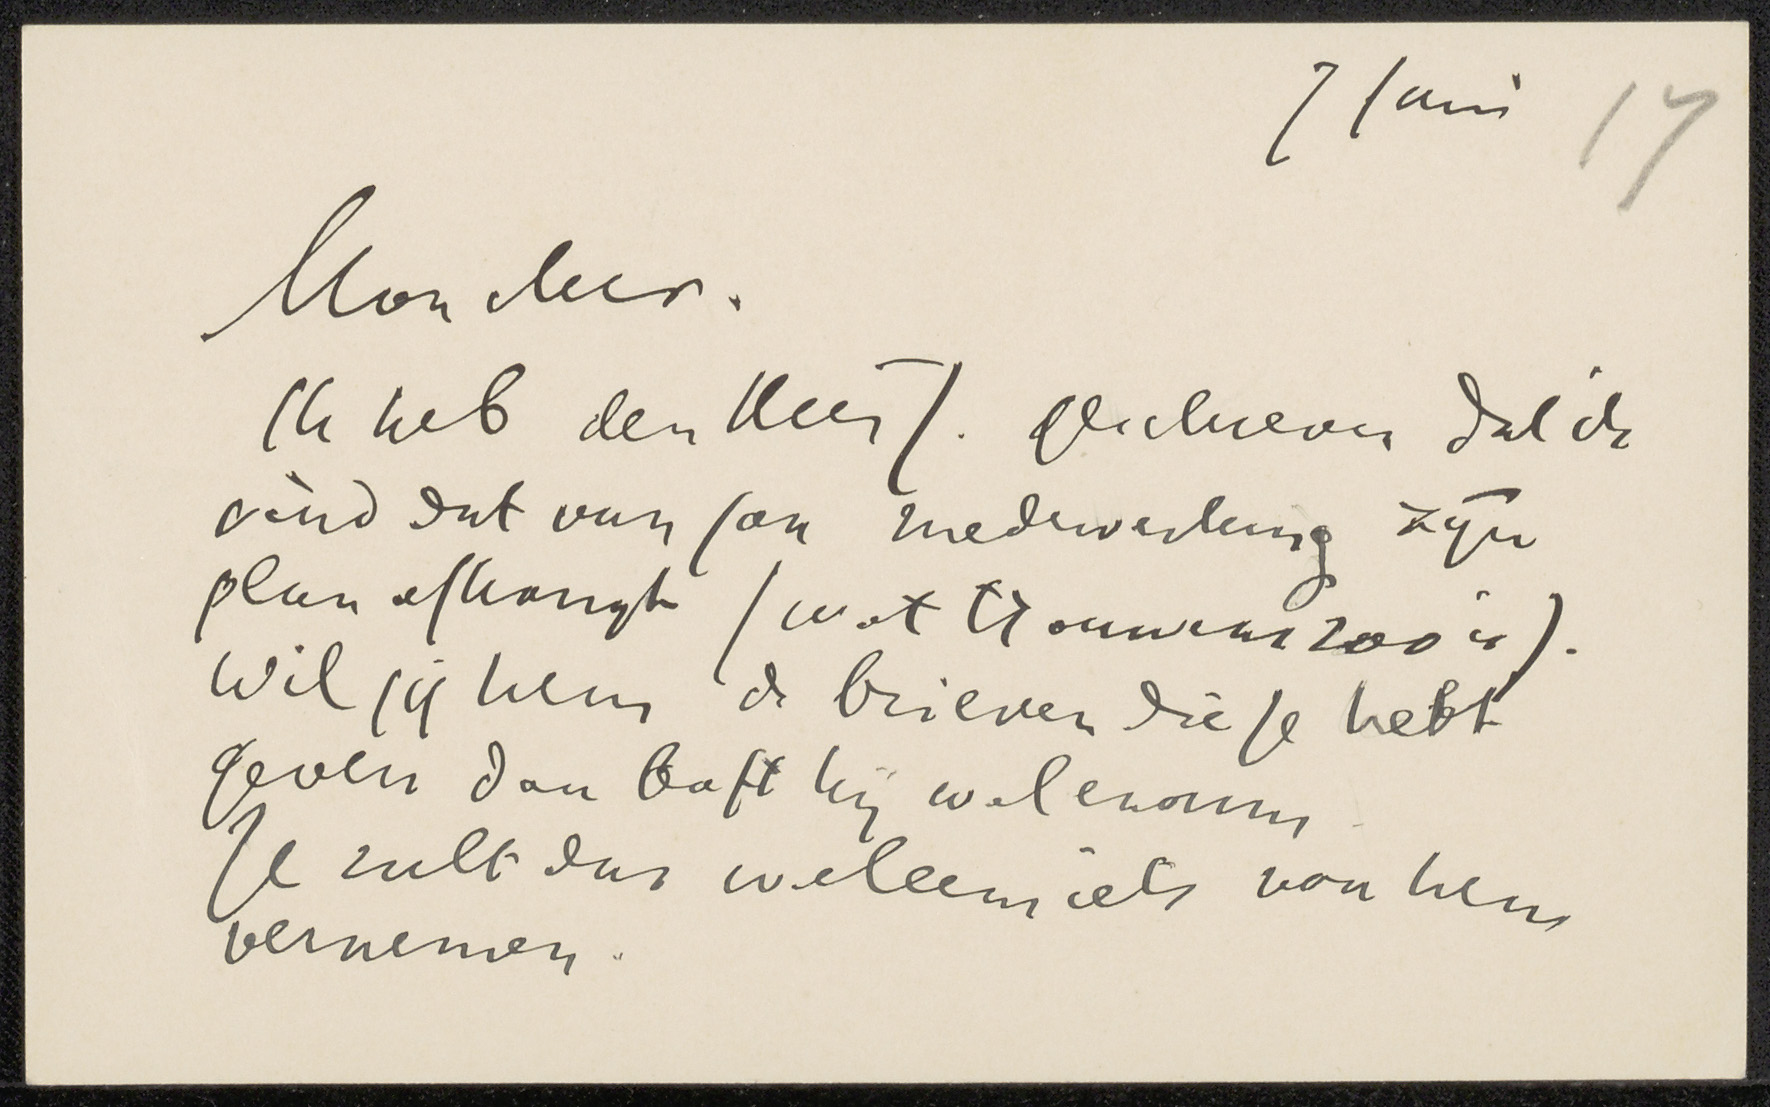 7 Juni 17
Mon cher.
Ik heb den Heer J. geschreven dat ik
vind dat van Jou medewerking zijn
plan afhangt (wat trouwens zoo is).
Wil jij hem de brieven die je hebt
geven dan hij wel
Je zult dus wel eens iets van hem
vernemen.